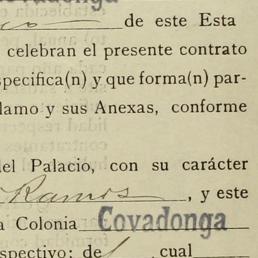 Covadonga
de este Esta
celebran el presente contrato
specifica(n) y que forma(n) par-
lamo y sus Anexas, conforme
del Palacio, con su carácter
Ramos, y este
a Colonia Covadonga
spectivo: de cual